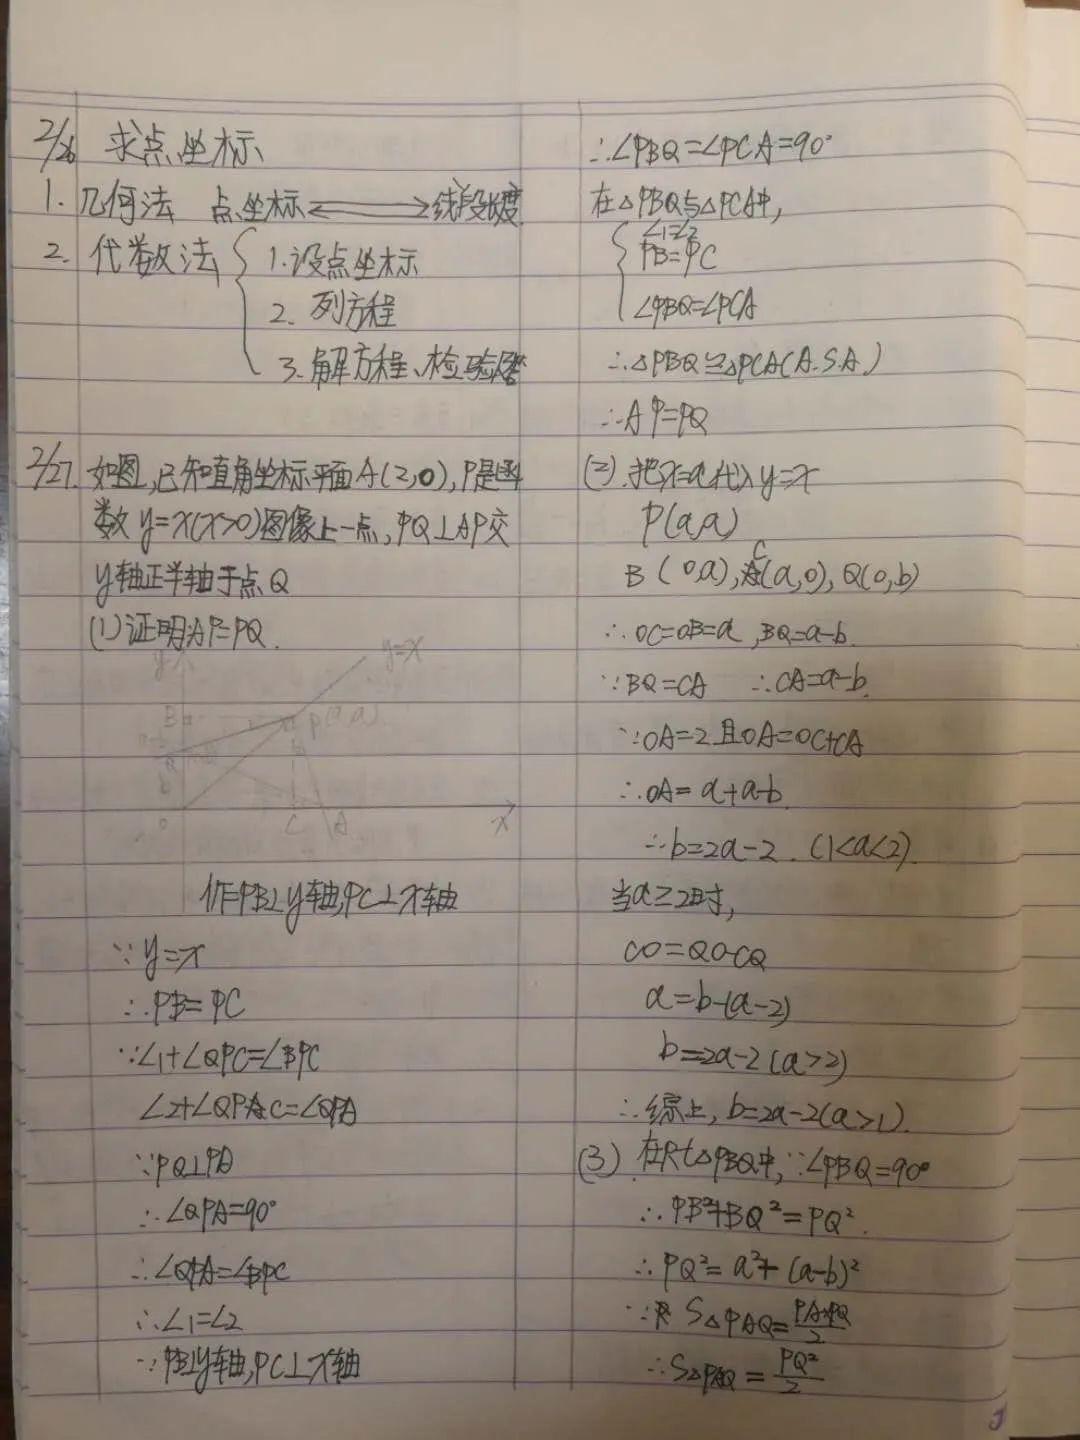 2/26 求点坐标
1. 几何法 点坐标⟷线段长度
2. 代数法 { 1.设点坐标
2. 列方程
3.解方程、检验
2/27. 如图,已知直角坐标平面A(2,0),P是函
数y=x(x>0)图像上一点,PQ⊥AP交
y轴正半轴于点Q
(1)证明:AP=PQ.
y
y=x
B
P(a,a)
b
O
C
A
x
作PB⊥y轴,PC⊥x轴
∵y=x
∴PB=PC
∵∠1+∠QPC=∠BPC
∠2+∠QPC=∠QPA
∵PQ⊥PA
∴∠QPA=90°
∴∠QPA=∠BPC
∴∠1=∠2
∵PB⊥y轴,PC⊥x轴
∴∠PBQ=∠PCA=90°
在△PBQ与△PCA中,
{ ∠1=∠2
PB=PC
∠PBQ=∠PCA
∴△PBQ≅△PCA(A.S.A)
∴AP=PQ
(2).把x=a代入y=x
P(a,a)
B(0,a),C(a,0),Q(0,b)
∴OC=OB=a,BQ=a-b.
∵BQ=CA ∴CA=a-b.
∵OA=2且OA=OC+CA
∴OA=a+a-b.
∴b=2a-2.(1<a<2).
当a≥2时,
CO=QO-CQ
a=b-(a-2)
b=2a-2(a>2)
∴综上,b=2a-2(a>1).
(3).在Rt△PBQ中,∵∠PBQ=90°
∴PB²+BQ²=PQ².
∴PQ²=a²+(a-b)²
∵S△PAQ=PA×PQ/2
∴S△PAQ=PQ²/2